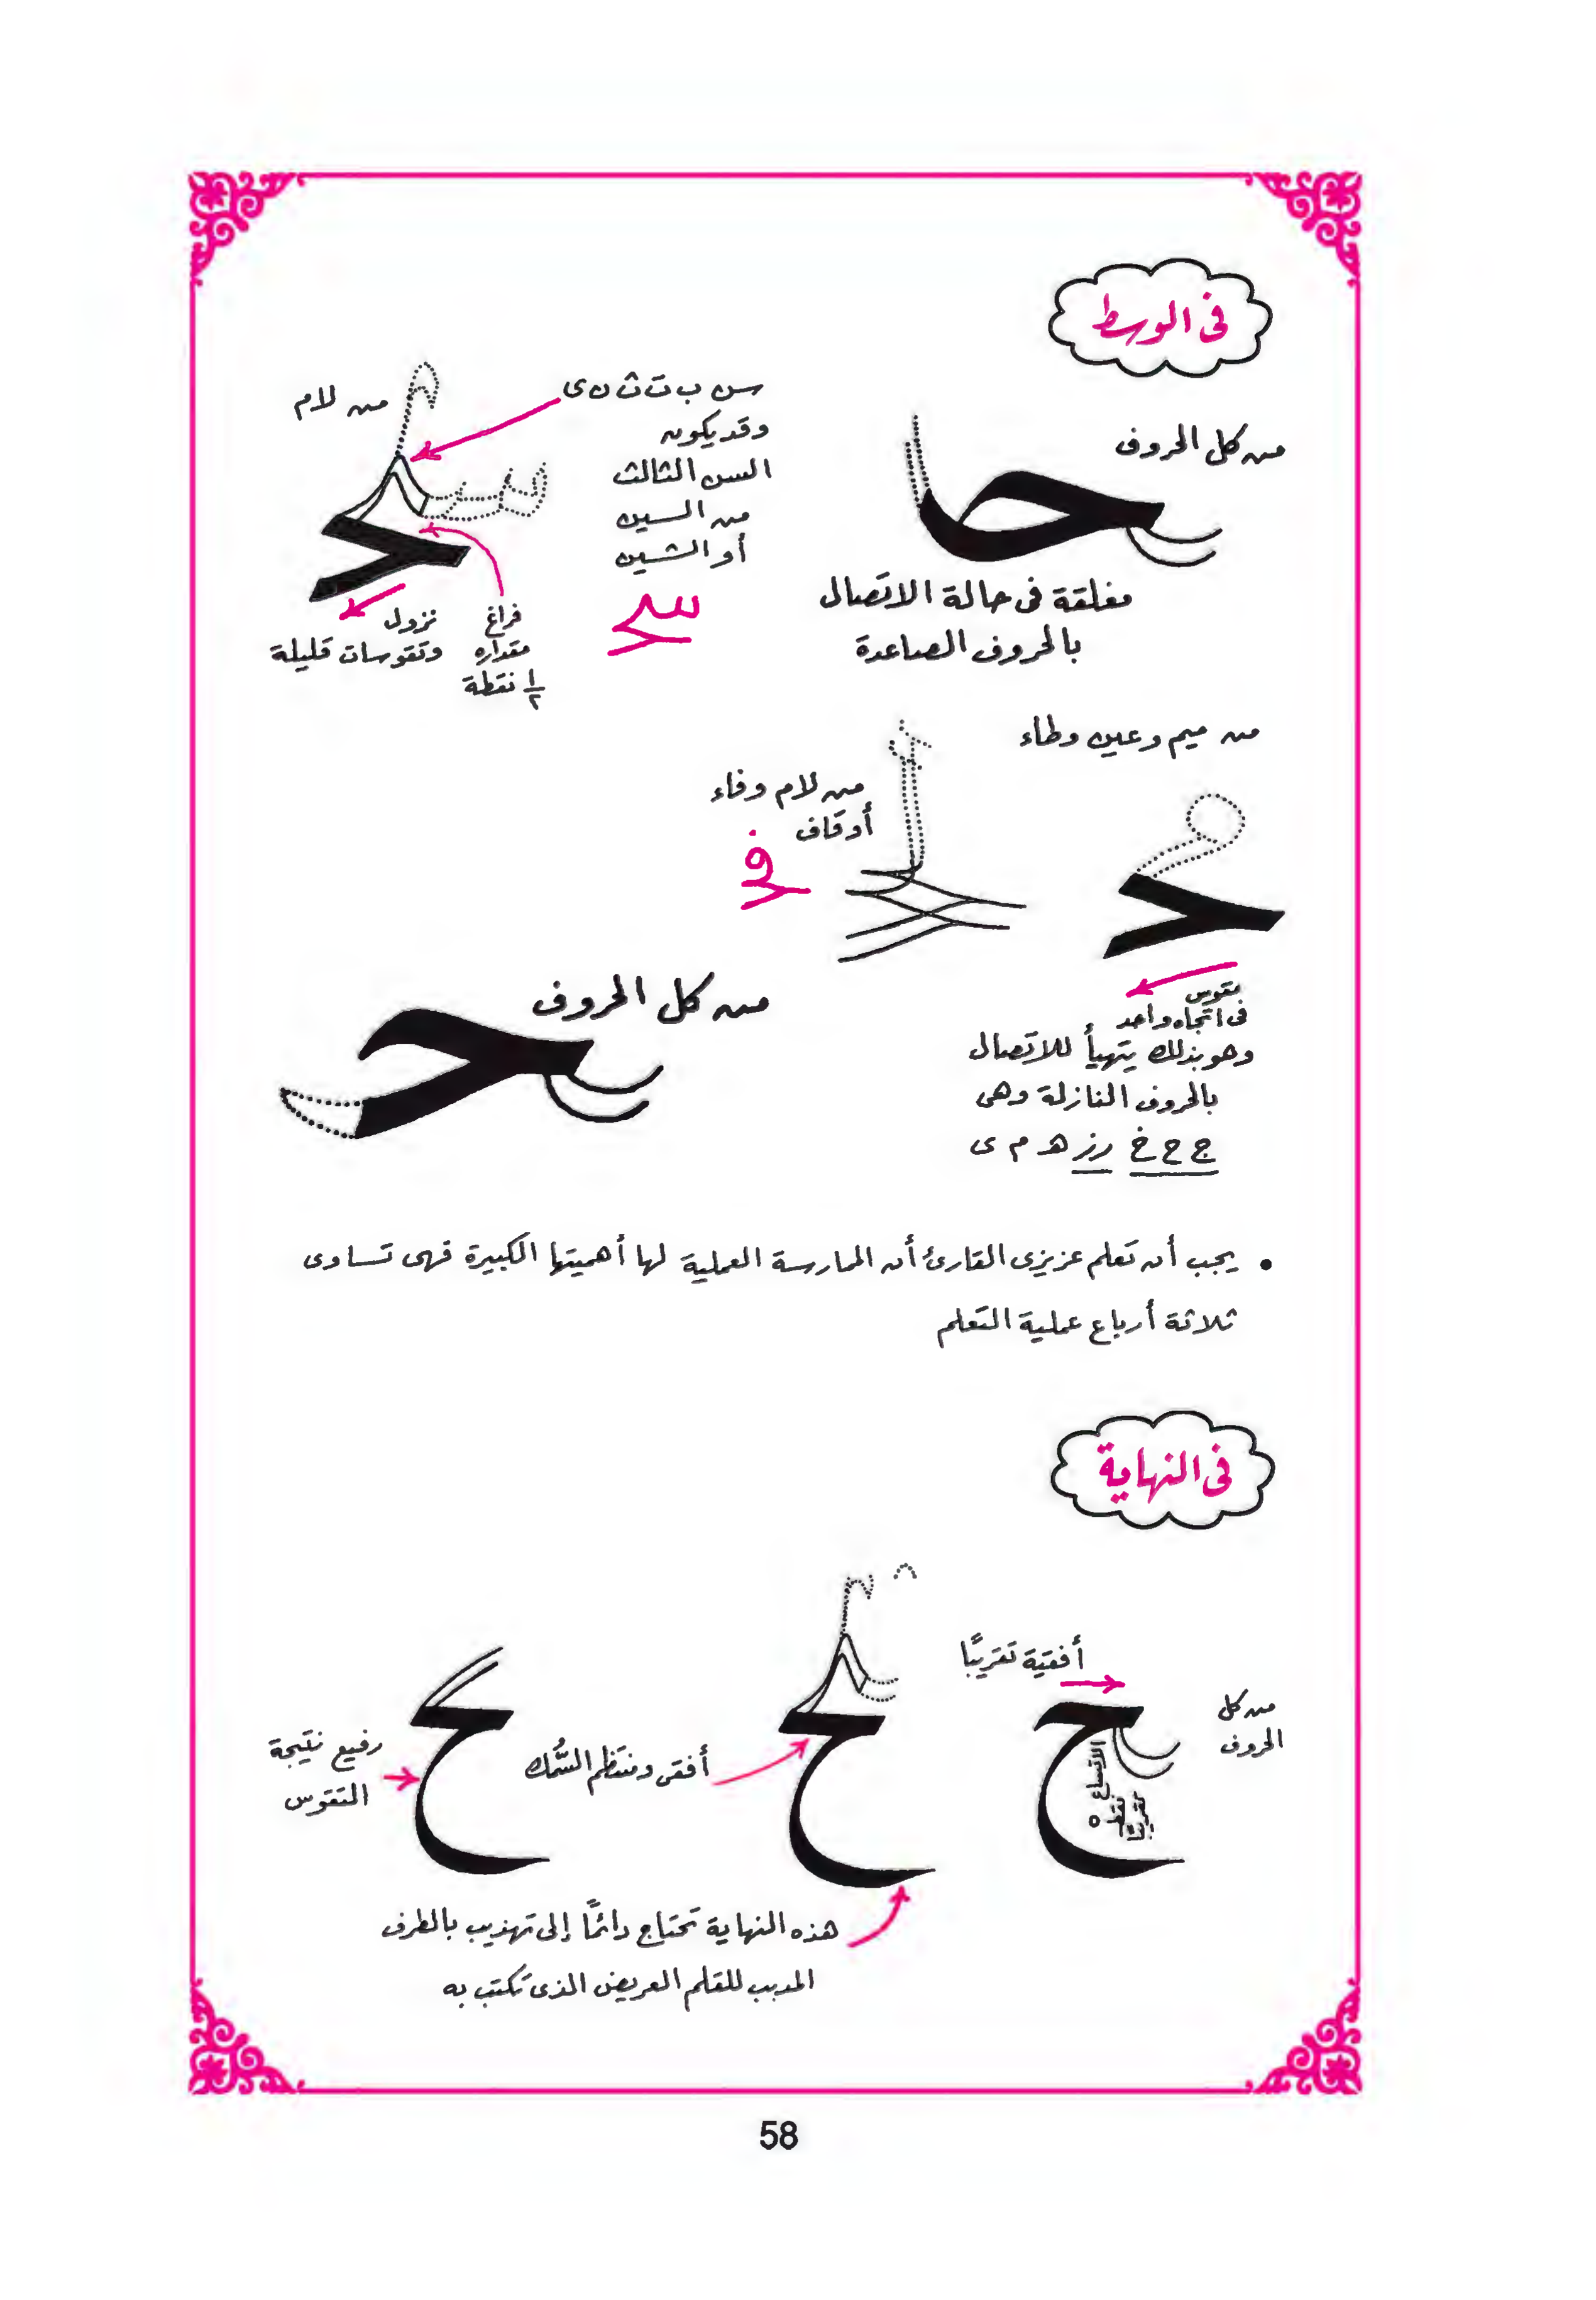 فى الوسط
من كل الحروف
مغلقة فى حالة الاتصال
بالحروف الصاعدة
سن ب ت ث ن ى
وقد يكون
السن الثالث
من السين
أو الشين
من لام
فراغ
مقداره
١/٢ نقطة
نزول
وتقوسات قليلة
من ميم وعين وطاء
من لام وفاء
أو قاف
مقوس
فى اتجاه واحد
وهو بذلك يتهيأ للاتصال
بالحروف النازلة وهى
ج ح خ ر ز ه م ى
من كل الحروف
• يجب أن تعلم عزيزى القارئ أن الممارسة العملية لها أهميتها الكبيرة فهى تساوى
ثلاثة أرباع عملية التعلم
فى النهاية
من كل
الحروف
أفقية تقريبًا
الاتساع
٥ نقط
تقريبًا
أفقى ومنتظم السُّمك
رفيع نتيجة
التقوس
هذه النهاية تحتاج دائمًا إلى تهذيب بالطرف
المدبب للقلم العريض الذى تكتب به
58